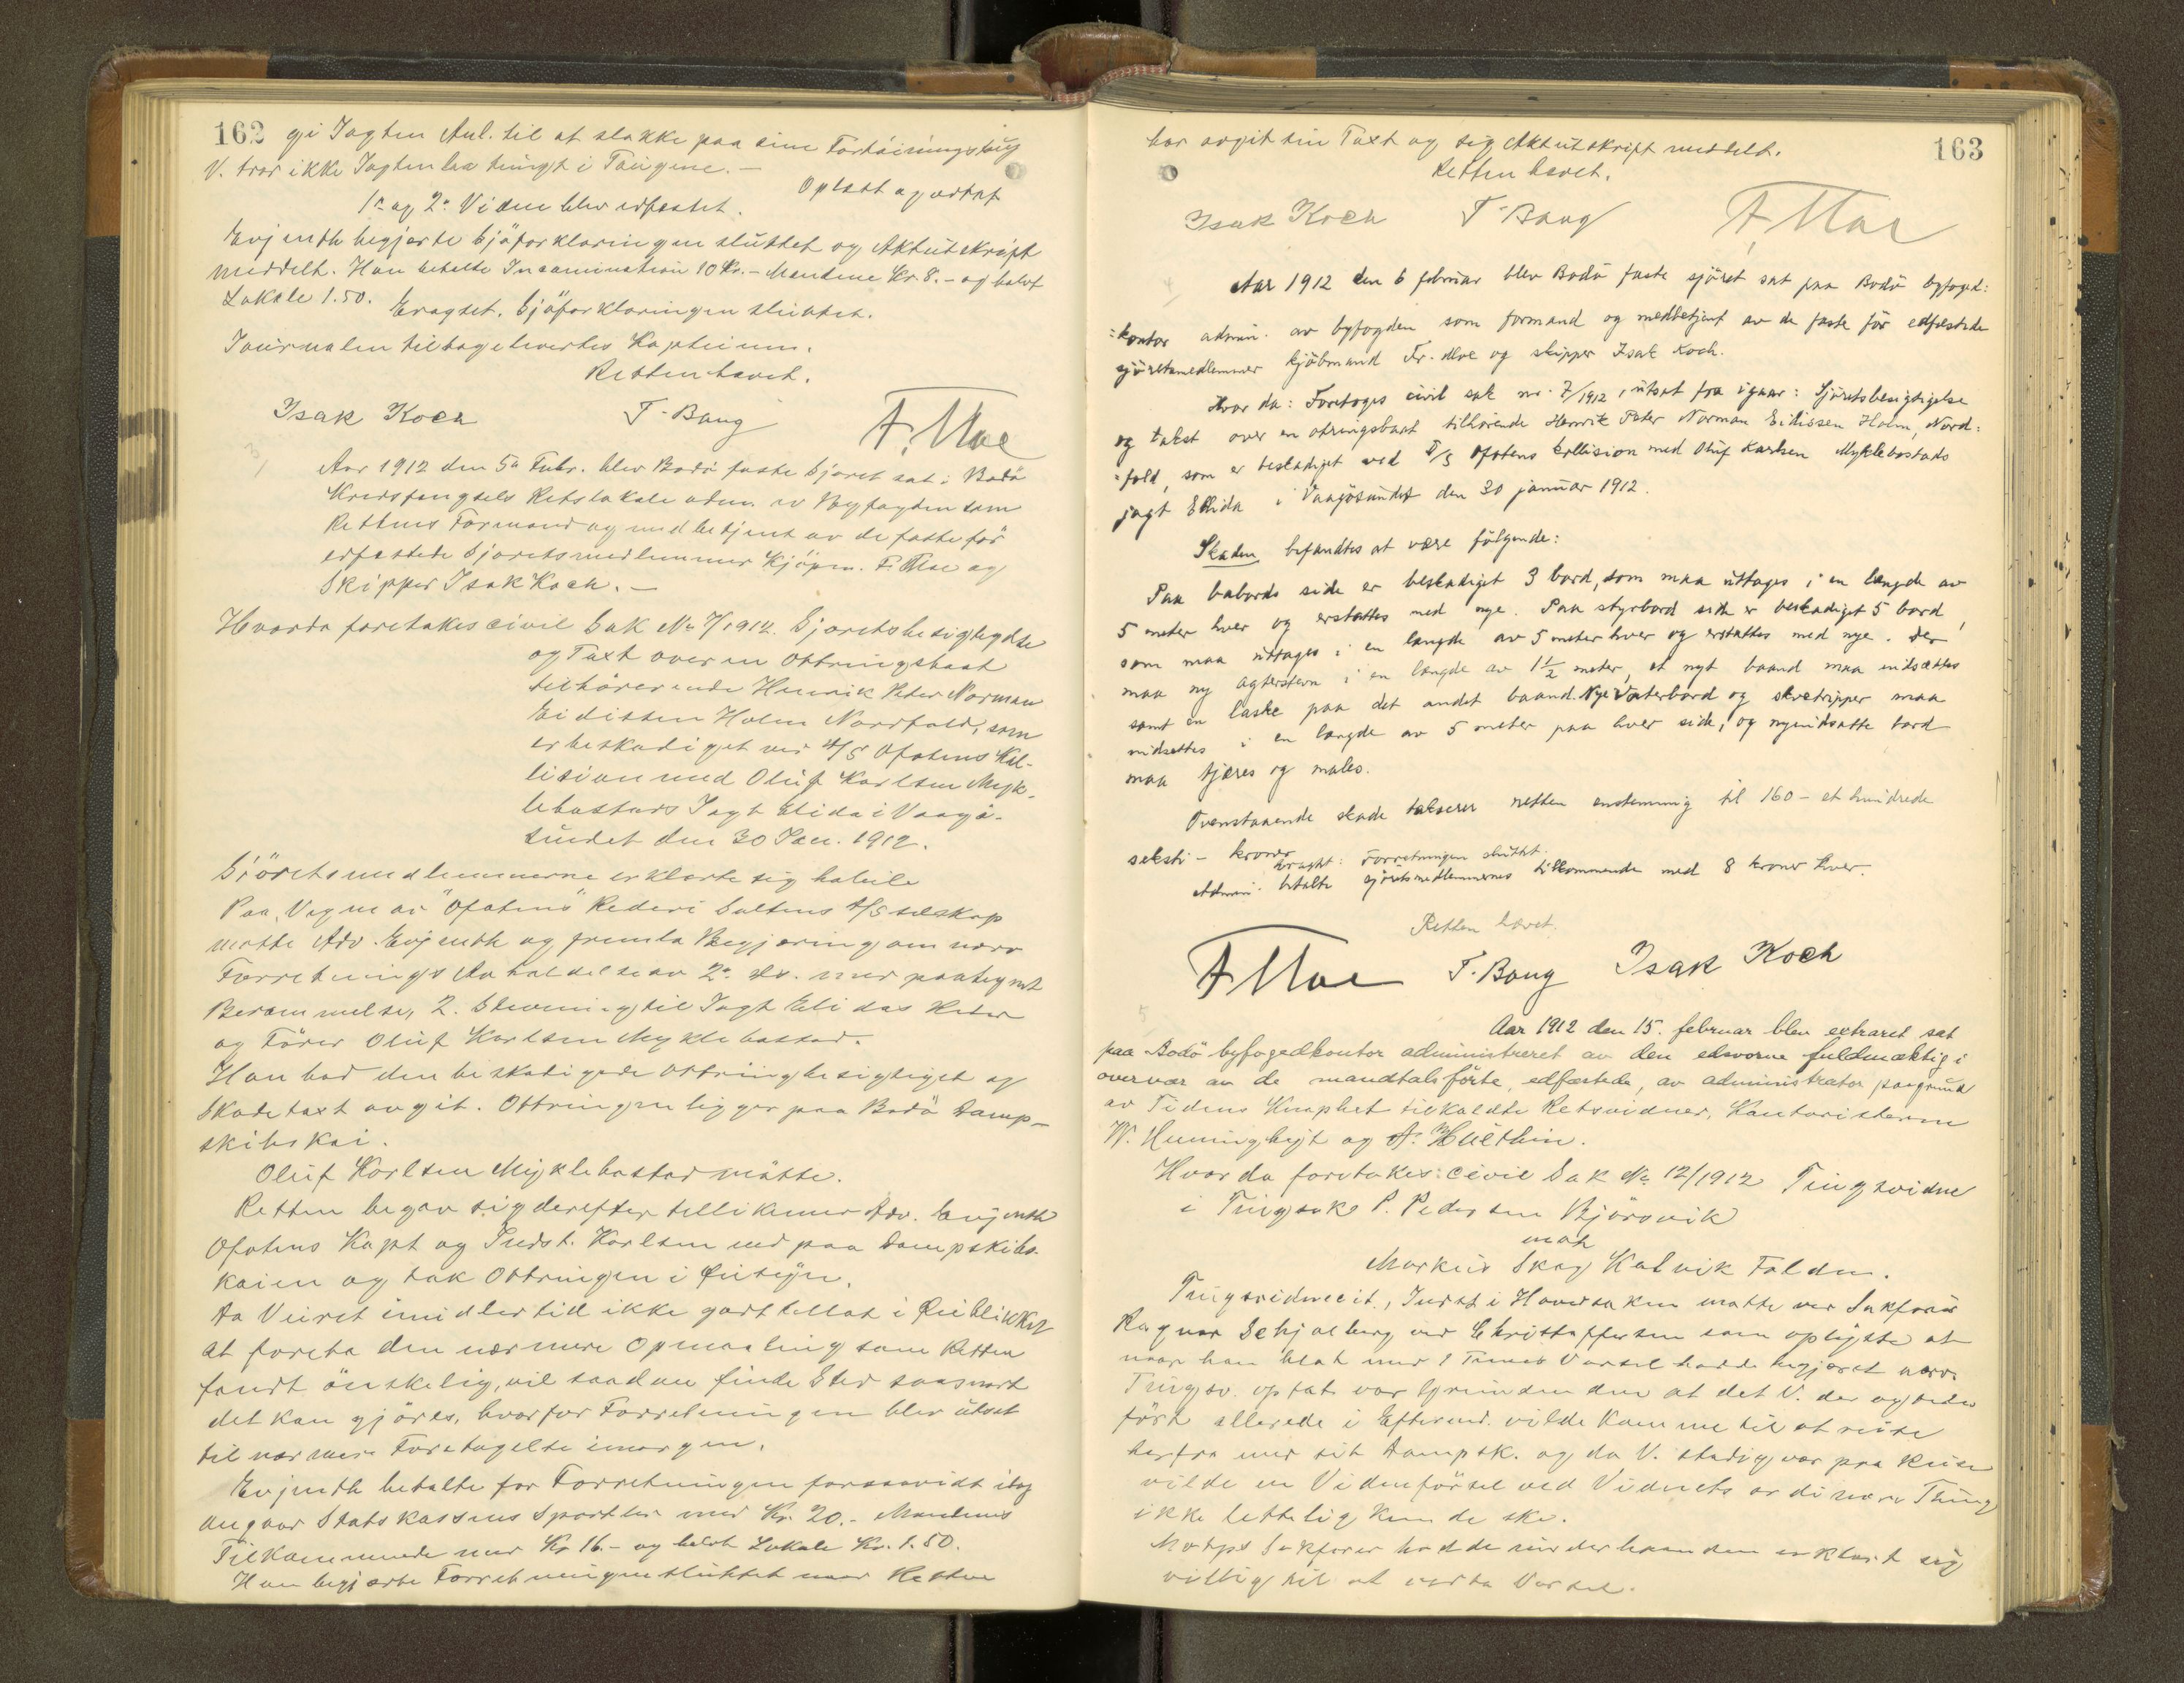 162 gi Jagten Anl. til at slakke paa sine Fortöiningstaug
V. tror ikke Jagten laa tungt i Taugene. —
Oplæst og vedtat
1ste og 2de Vidne blev edfæstet.
Evjenth begjærte Sjöforklaringen sluttet og Aktutskrift
meddelt. Han betalte Incamination 10 Kr. - Mændene Kr. 8. - og halvt
Lokale 1.50.
Eragtet. Sjöforklaringen sluttet.
Journalen tilbageleveres Kapteinen.
Retten hævet.
Isak Koch F. Bang F. Moe
3/
Aar 1912 den 5te Febr. blev Bodö faste Sjöret sat i Bodö
Kredsfængsels Retslokale adm. av Byfogden som
Rettens Formand og medbetjent av de faste för
edfæstede Sjöretsmedlemmer Kjöpm. F. Moe og
Skipper Isak Koch. —
Hvorda foretakes civil Sak No 7/1912. Sjöretsbesigtigelse
og Taxt over en Ottringsbaat
tilhörerende Henrik Peter Norman
Eidissen Holm Nordfold, som
er beskadiget ved D/S Ofotens Kol-
lision med Oluf Karlsen Myk-
lebostads Jagt Elida i Vaagö-
sundet den 30 Jan. 1912.
Sjöretsmedlemmerne erklærte sig habile
Paa Vegne av "Ofotens" Rederi Saltens D/S selskap
mötte Adv. Evjenth og fremla Begjæring om nærv
Forretnings Avholdelse av 2. ds. med paategnet
Berammelse, 2. Stevning til Jagt Elidas Reder
og Förer Oluf Karlsen Myklebostad.
Han bad den beskadigede Ottring besigtiget og
Skadetaxt avgit. Ottringen ligger paa Bodö Damp-
skibskai.
Oluf Karlsen Myklebostad mötte.
Retten begav sig derefter tillikemed Adv. Evjenth
Ofotens Kapt og Indst. Karlsen ned paa Dampskibs-
kaien og tok Ottringen i Öiesyn.
Da Veiret imidlertid ikke godt tillot i Öieblikket
at foreta den nærmere Opmaaling som Retten
fandt önskelig, vil saadan finde Sted saasnart
det kan gjöres, hvorfor Forretningen blev utsat
til nærmere Foretagelse imorgen.
Evjenth betalte for Forretningen forsaavidt idag
angaar Statskassens Sportler med Kr. 20. - Mændenes
Tilkommende med Kr 16. - og halvt Lokale Kr. 1.50.
Han begjærte Forretningen sluttet naar Retten
163
har avgit sin Taxt og sig Aktutskrift meddelt.
Retten hævet.
Isak Koch F. Bang F. Moe
4/
Aar 1912 den 6 februar blev Bodö faste sjöret sat paa Bodö byfoged:
:kontor admin. av byfogden som formand og medbetjent av de faste för edfæstede
sjöretsmedlemmer kjöbmand Fr. Moe og skipper Isak Koch.
Hvor da: Foretoges civil sak nr. 7/1912, utsat fra igaar: Sjöretsbesigtigelse
og takst over en otringsbaat tilhörende Henrik Peter Norman Eidissen Holm, Nord:
:fold, som er beskadiget ved D/S Ofotens kollision med Oluf Karlsen Myklebostads
jagt Ellida i Vaagösundet den 30 januar 1912.
Skaden befandtes at være fölgende:
Paa babords side er beskadiget 3 bord, som maa uttages i en længde av
5 meter hver og erstattes med nye. Paa styrbord side er beskadiget 5 bord,
som maa uttages i en længde av 5 meter hver og erstattes med nye. Der
maa ny agterstevn i en længde av 1½ meter, et nyt baand maa indsættes
samt en laske paa det andet baand. Nye Vaterbord og skvetripper maa
indsættes i en længde av 5 meter paa hver side, og nyindsatte bord
maa tjæres og males.
Ovenstaaende skade takserer retten enstemmig til 160 - et hundrede
seksti - kroner
Eragtet: Forretningen sluttet.
Admin. betalte sjöretsmedlemmernes tilkommende med 8 kroner hver.
Retten hævet.
F Moe F. Bang Isak Koch
5
Aar 1912 den 15. februar blev extraret sat
paa Bodö byfogedkontor administreret av den edsvorne fuldmægtig i
overvær av de mandtalsförte, edfæstede, av administrator paagrund
av Tidens Knaphet tilkaldte Retsvidner, Kontoristerne
W. Hunninghejt og A. Huethin.
Hvor da foretakes: Civil Sak No 12/1912 Tingsvidne
i Tingsak P. Pedersen Björsvik
mot
Markus Skog Kalvik Folden.
Tingsvidnecit., Indst i Hovedsaken mötte ved Sakförer
Ragnar Schjölberg ved Christoffersen som oplyste at
naar han blot med 1 Times Varsel hadde begjæret nærv.
Tingsv. optat var Grunden den at det V. der agtedes
fört allerede i Efterm. vilde komme til at reise
herfra med sit Dampsk. og da V. stadig var paa Reise
vilde en Vidneförsel ved Vidnets ordinære Thing
ikke lettelig kunde ske.
Motps Sakförer hadde underhaanden erklært sig
villig til at vedta Varsel.